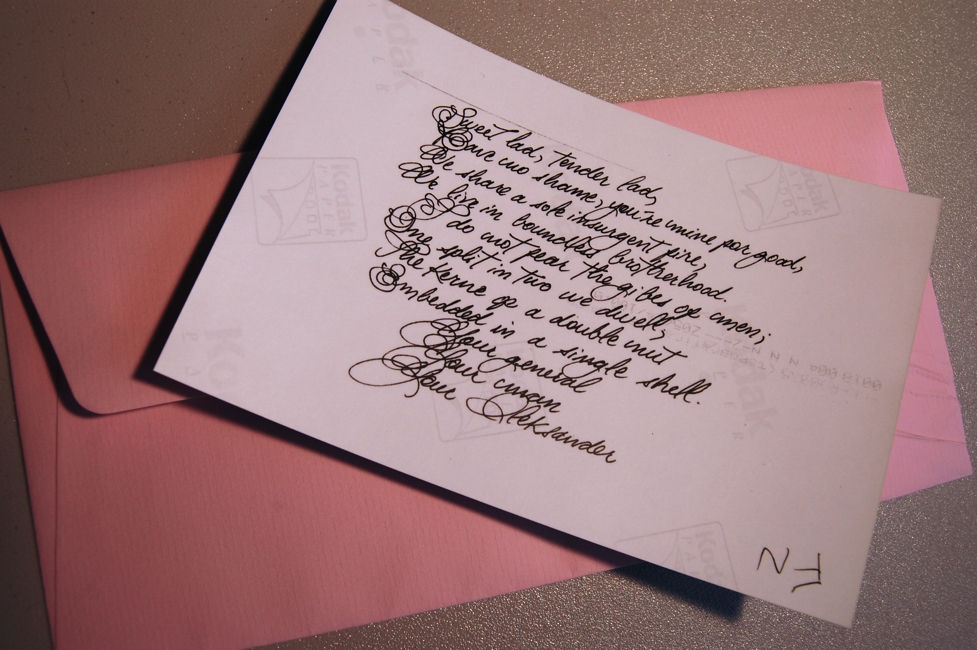 Sweet lad, tender lad,
Have no shame, you're mine for good,
We share a sole insurgent fire,
We live in boundless brotherhood.
I do not fear the gibes of men;
One split in two we dwell,
The kernel of a double nut
Embedded in a single shell.
Your general
Your man
Your Aleksander
Kodak
PAPER
Kodak
PAPER
Kodak
PAPER
Kodak
Kodak